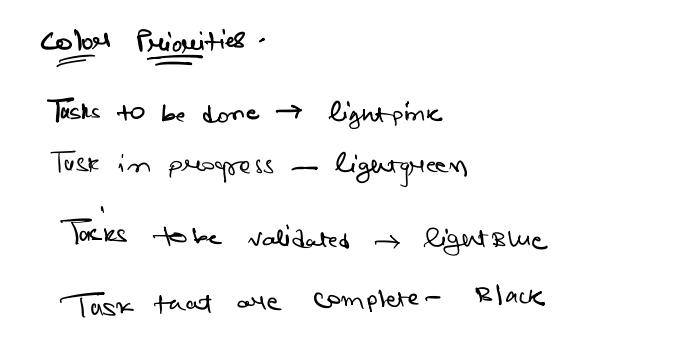 Color Priorities .
Tasks to be done → lightpink
Task in progress — lightgreen
Tasks to be validated → lightBlue
Task that are complete - Black